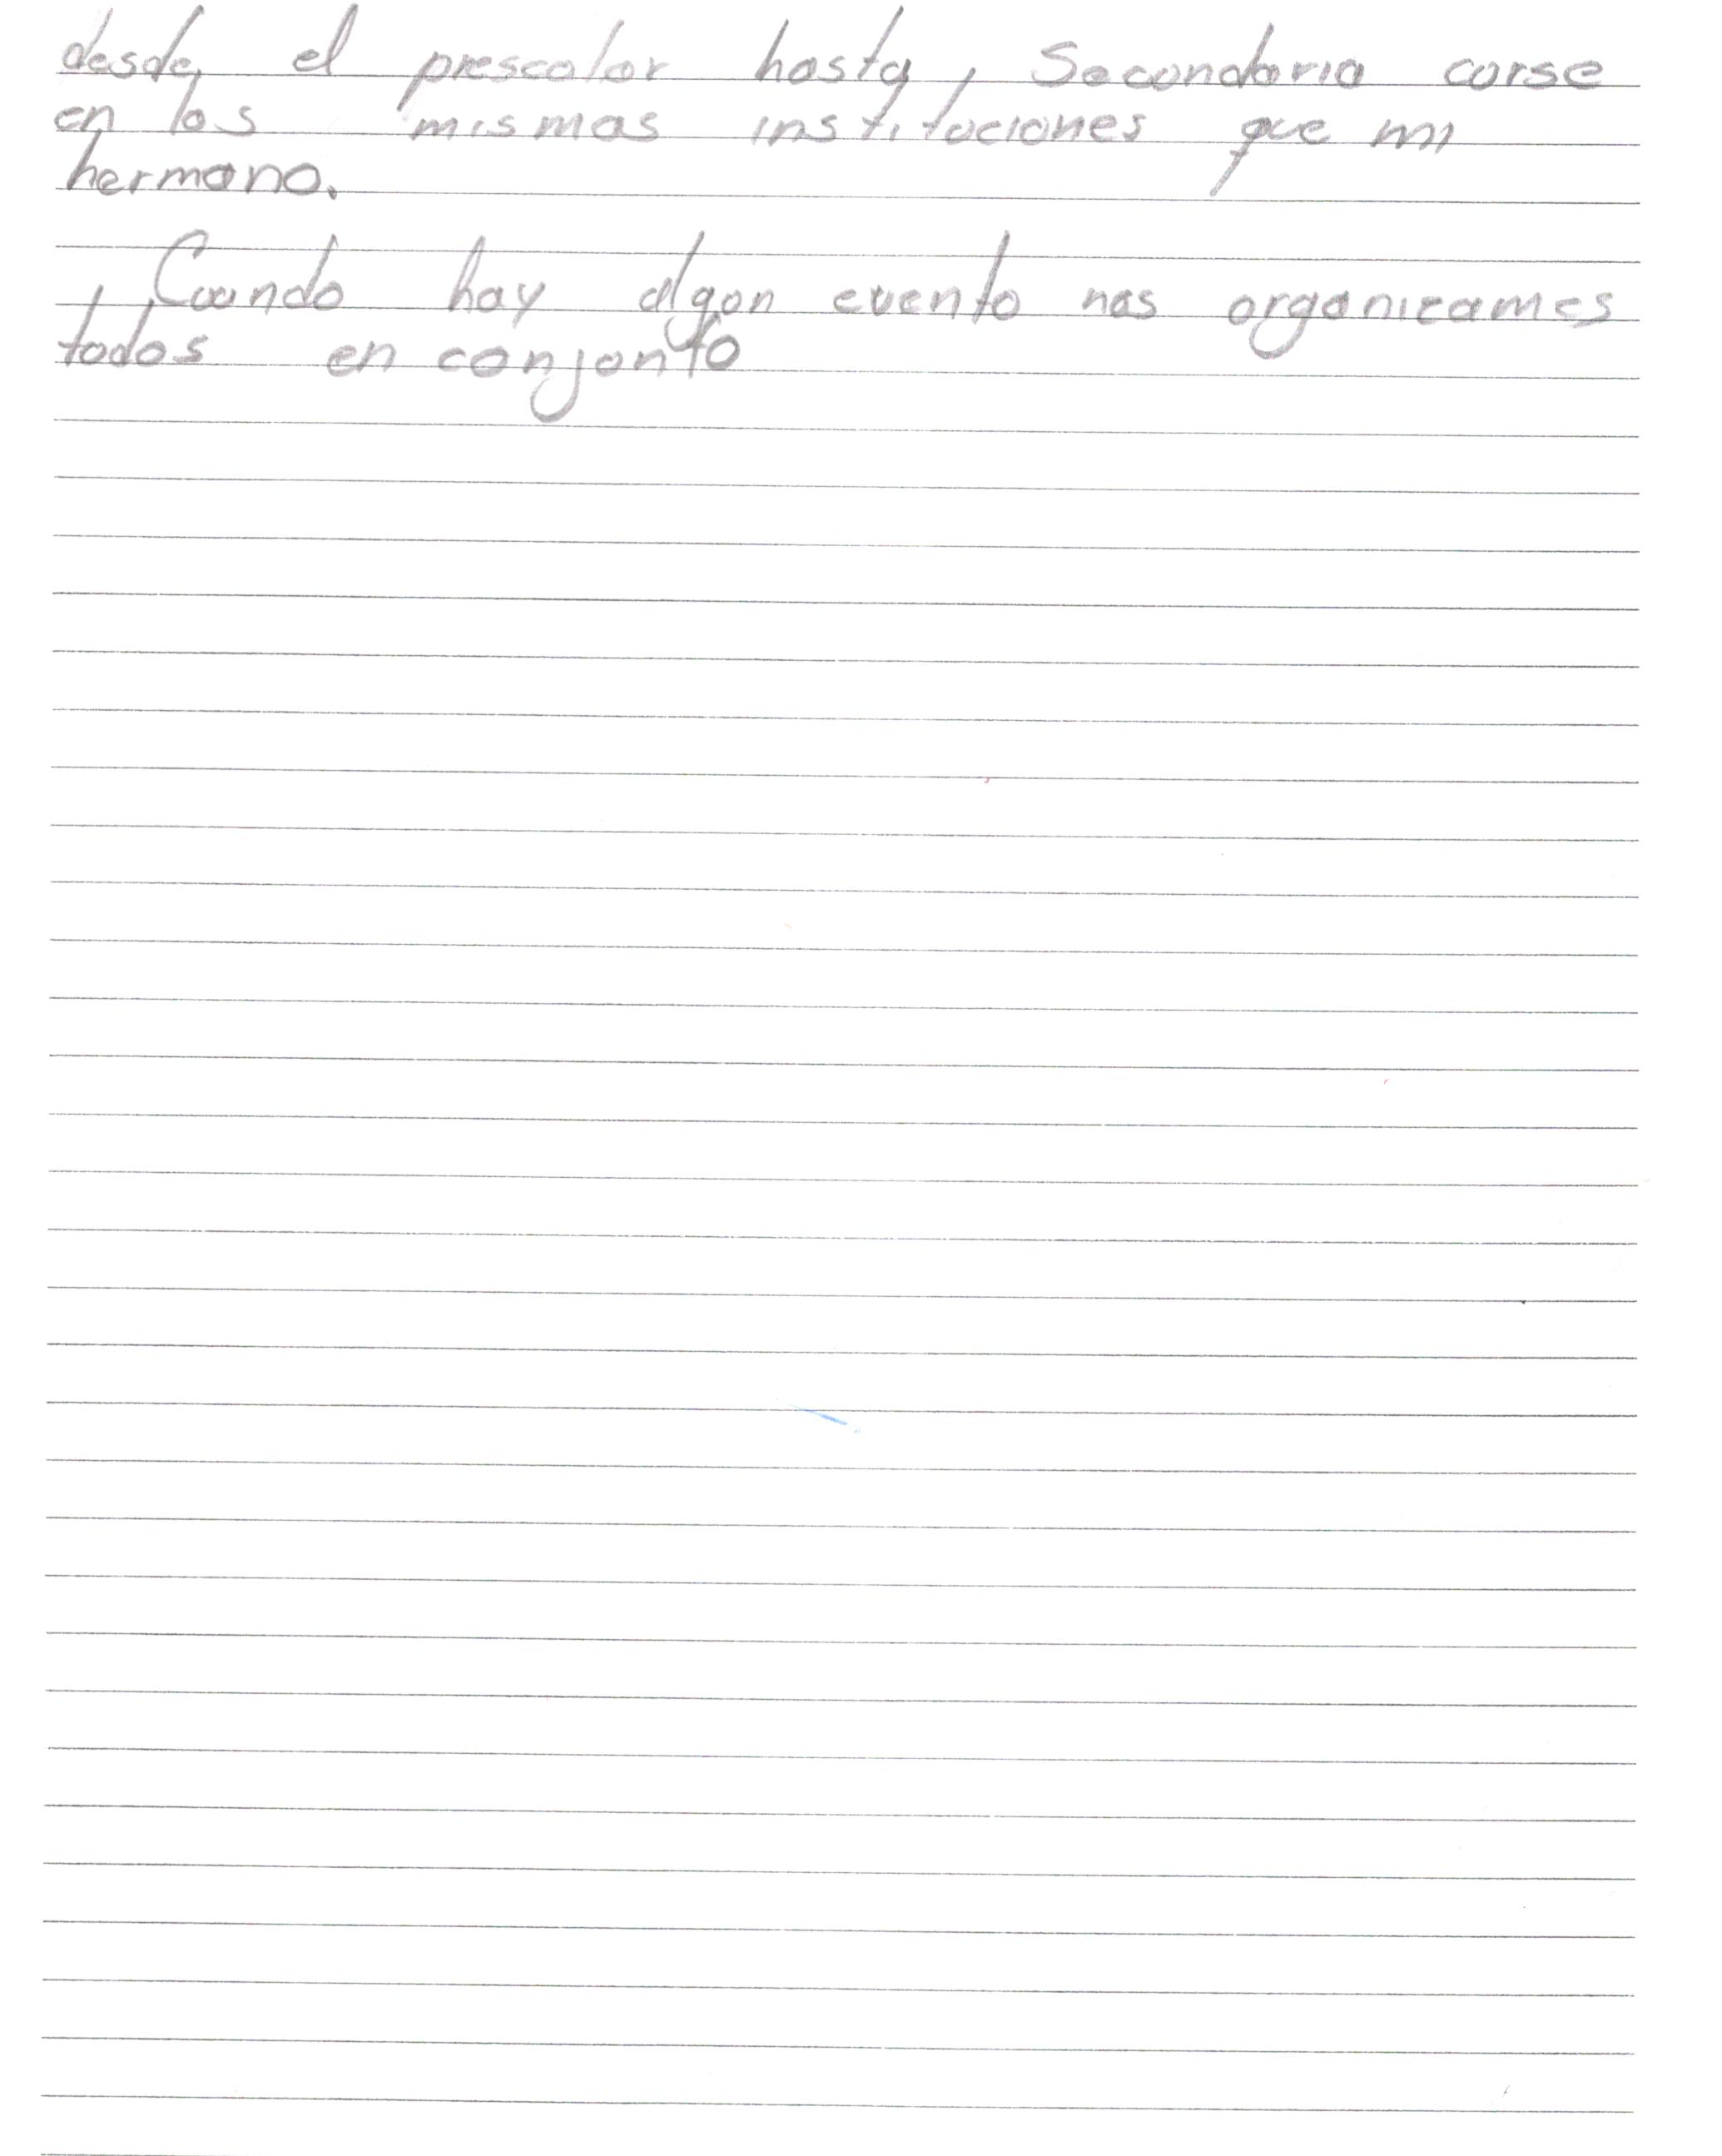 desde el prescolar hasta, Secundaria curse
en las mismas instituciones que mi
hermano.
Cuando hay algun evento nos organizamos
todos en conjunto